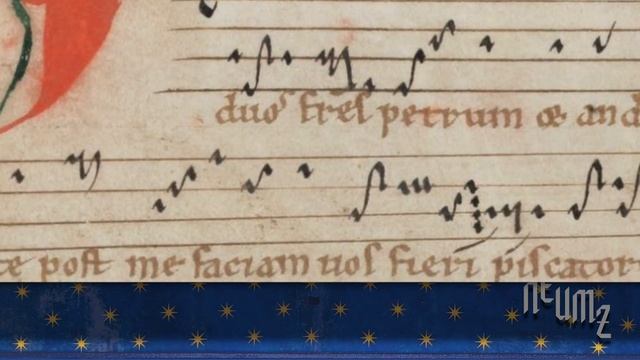 duos fres petrum & and
te post me faciam uos fieri piscator
neumz